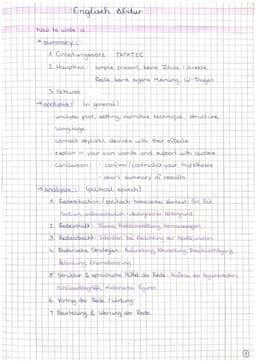 Englisch Abitur
how to write a
summary:
1. Einleitungssatz TATATEC
2. Hauptteil: simple present, keine Zitate / direkte
Rede, keine eigene Meinung, W-Fragen
3. Schluss
analysis: (in general)
analyse plot, setting, narrative technique, structure,
language
connect stylistic devices with their effects
explain in your own words and support with quotes
conclusion: confirm / contradict your hypothesis
short summary of results
analysis: (political speech)
1. Redesituation / politisch-historischer Kontext: Ort, Zeit,
Medium, ideologischer Hintergrund
2. Redeinhalt: Thema, Problemstellung, Kernaussagen
3. Redeabsicht: Intention bei Beachtung der
4. Rhetorische Strategien: Aufwertung, Abwertung, Beschwichtigung,
Dramatisierung
5. Struktur & sprachliche Mittel der Rede: Aufbau der Argumentation,
Schlüsselbegriffe, rhetorische Figuren
6. Vortrag der Rede / Wirkung
7. Beurteilung & Wertung der Rede